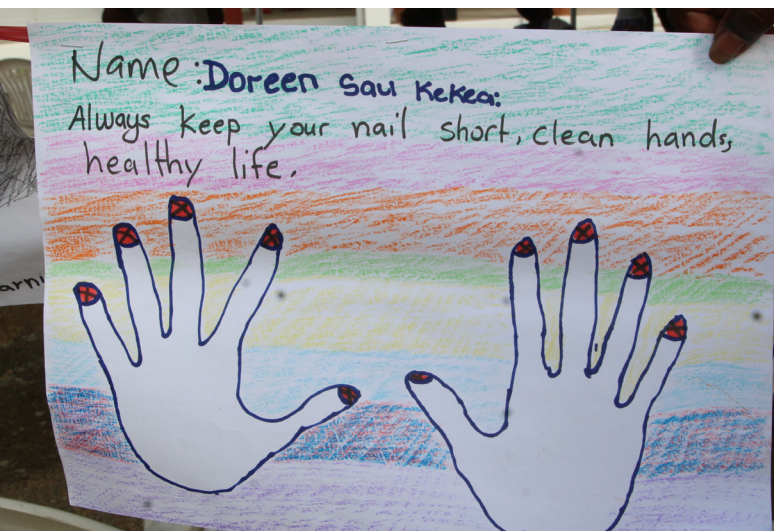 Name: Doreen Sau Kekea:
Always keep your nail short, clean hands,
healthy life.